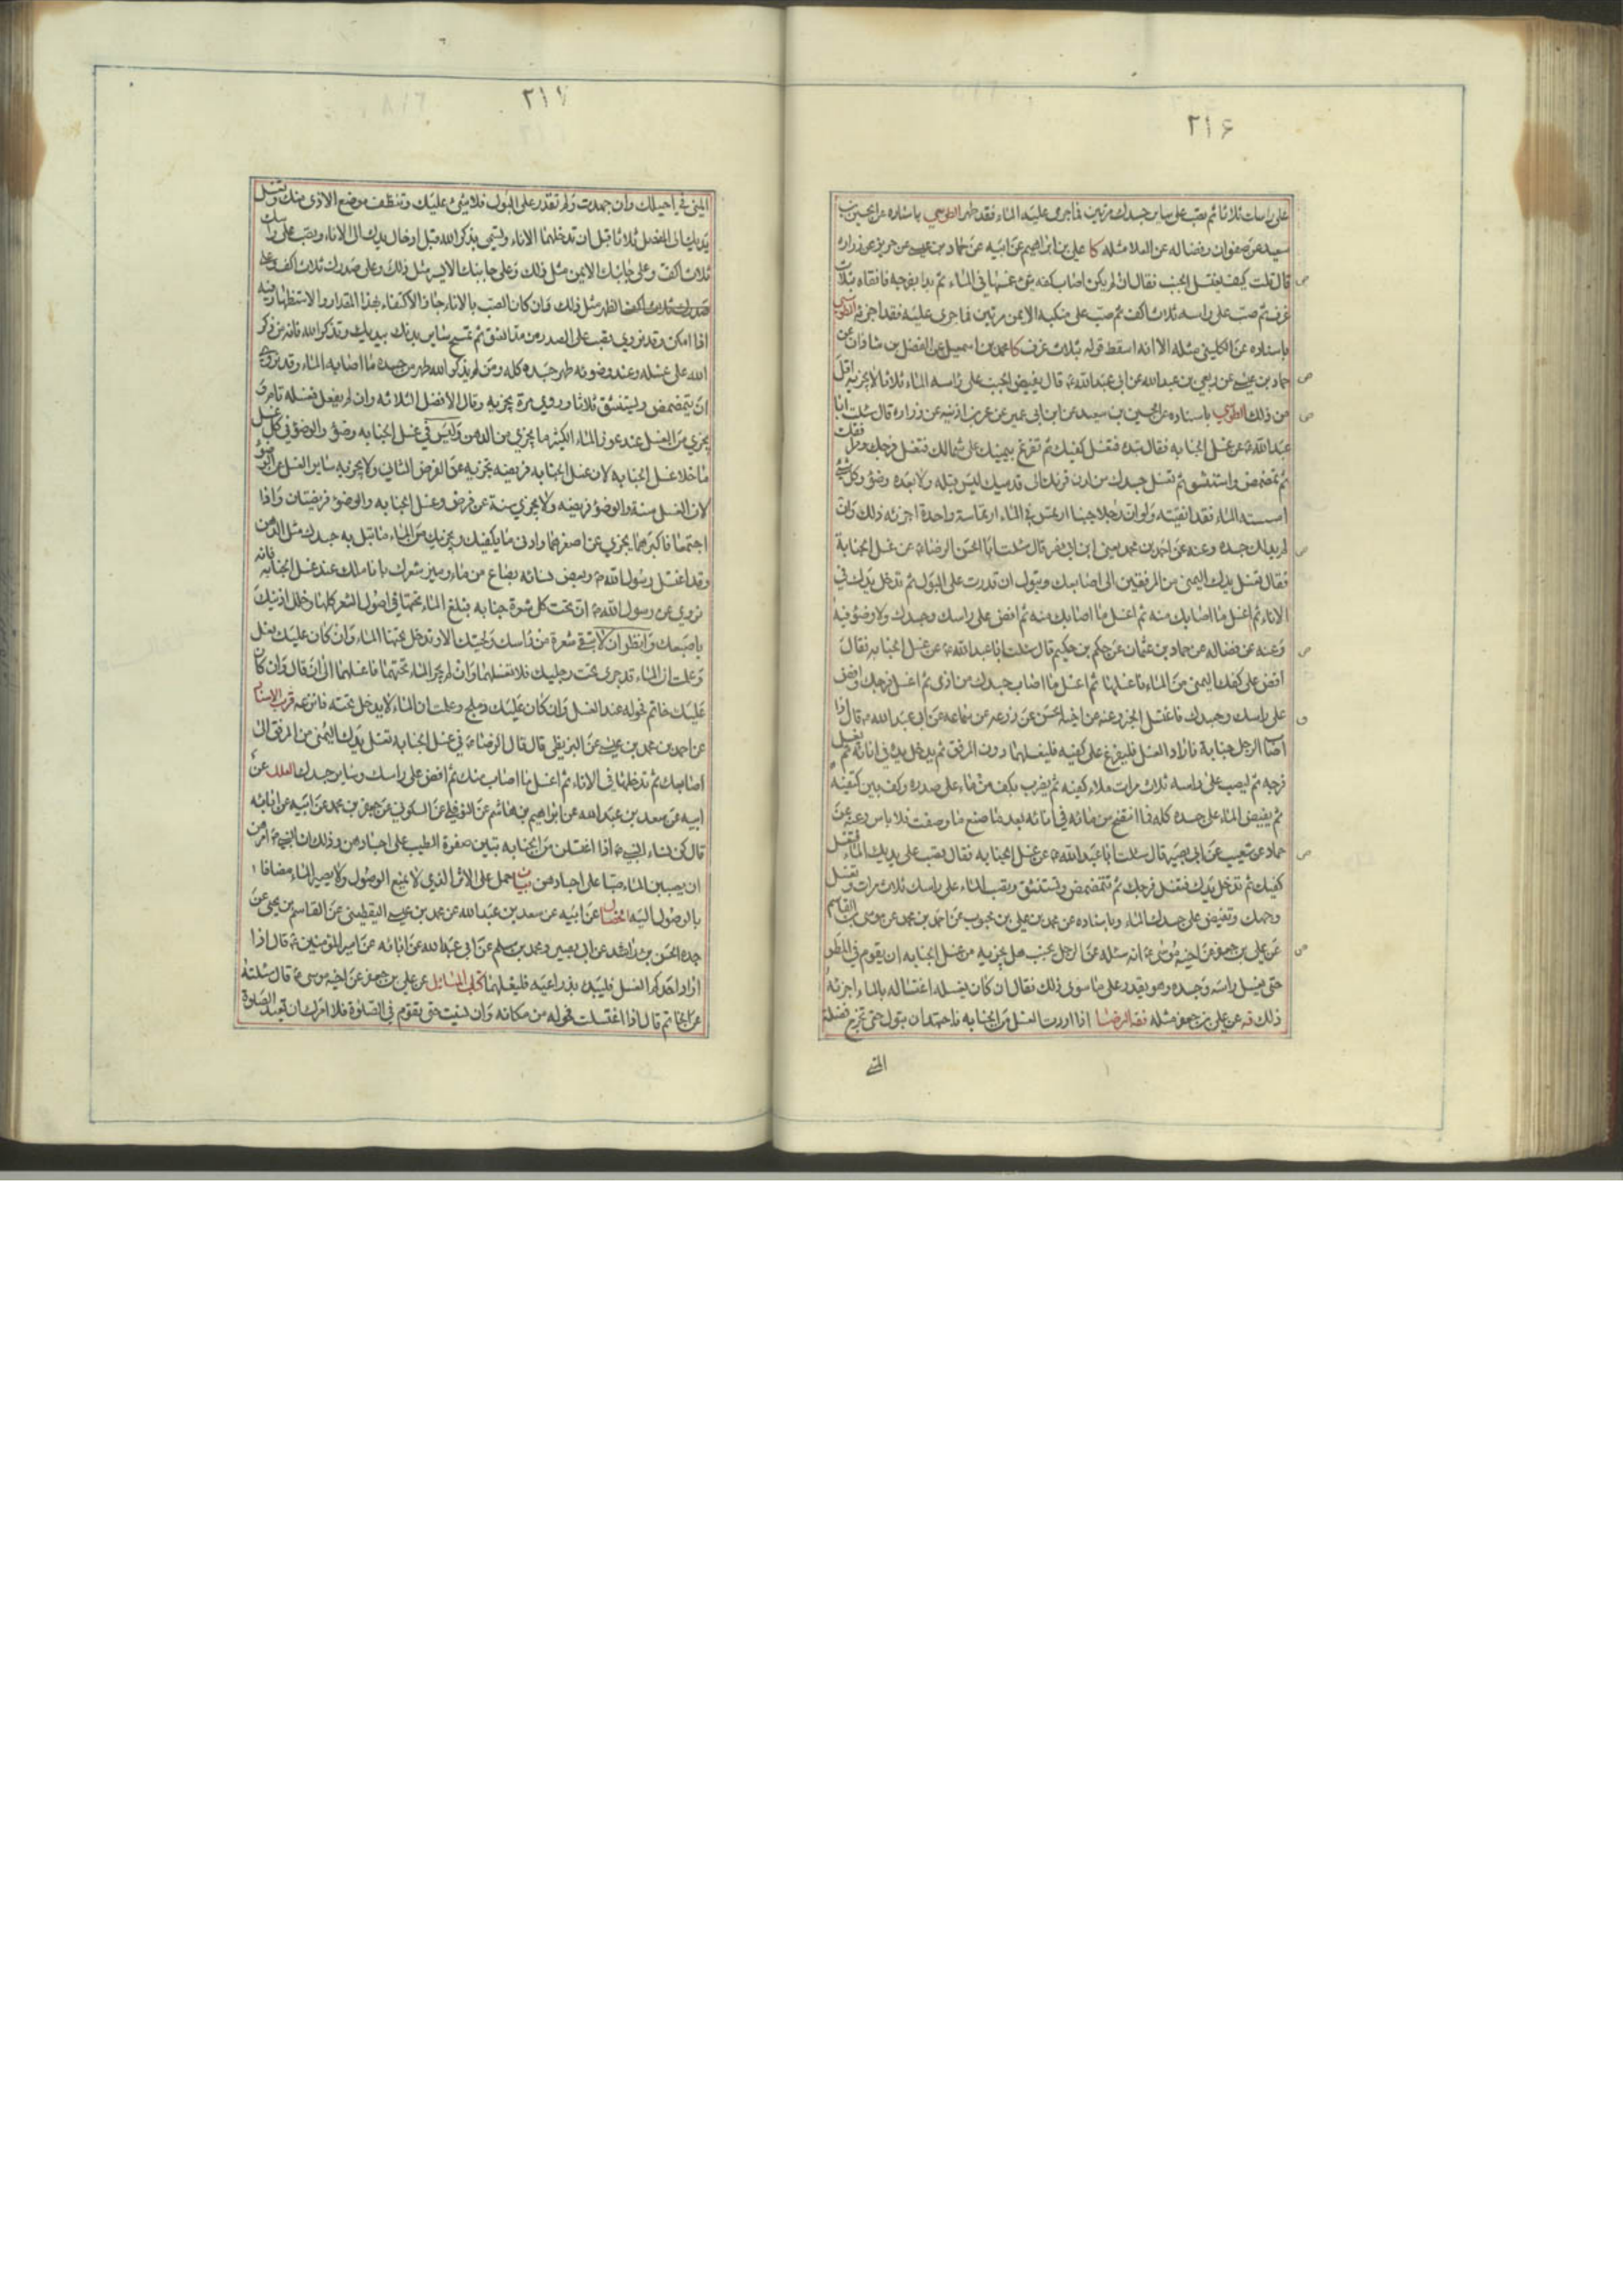 ٢١۶
على راسك ثلاثا ثم تصب على ساير جسدك مرتين فما جرى عليه الماء فقد طهر الطوسي باسناده عن الحسين بن
سعيد عن صفوان وفضاله عن العلا مثله كا علي بن ابراهيم عن ابيه عن حماد بن عيسى عن حريز عن زراره
قال قلت كيف يغتسل الجنب فقال ان لم يكن اصاب كفه شئ غمسها في الماء ثم بدا بفرجه فانقاه بثلاث
غرف ثم صب على راسه ثلاث اكف ثم صب على منكبه الايمن مرتين فما جرى عليه فقد اجزئه الطوسي
باسناده عن الكليني مثله الا انه اسقط قوله بثلاث غرف كا محمد بن اسمعيل عن الفضل بن شاذان عن
حماد بن عيسى عن ربعي بن عبدالله عن ابي عبدالله ع قال يفيض الجنب على راسه الماء ثلاثا لا يجزيه اقل
من ذلك الطوسي باسناده عن الحسين بن سعيد عن ابن ابي عمير عن عمر بن اذينه عن زراره قال سئلت ابا
عبدالله ع عن غسل الجنابه فقال تبدء فتغسل كفيك ثم تفرغ بيمينك على شمالك فتغسل فرجك ومرافقك
ثم تمضمض واستنشق ثم تغسل جسدك من لدن قرنك الى قدميك ليس قبله ولا بعده وضؤ وكل شئ
امسسته الماء فقد انقيته ولو ان رجلا جنبا ارتمس في الماء ارتماسة واحدة اجزئه ذلك وان
لم يدلك جسده وعنه عن احمد بن محمد يعني ابن ابي نصر قال سئلت ابا الحسن الرضا ع عن غسل الجنابة
فقال تغسل يدك اليمنى من المرفقين الى اصابعك وتبول ان قدرت على البول ثم تدخل يدك في
الاناء ثم اغسل ما اصابك منه ثم افض على راسك وجسدك ولا وضوء فيه
وعنه عن فضاله عن حماد بن عثمان عن حكم بن حكيم قال سئلت ابا عبدالله ع عن غسل الجنابه فقال
افض على كفك اليمنى من الماء فاغسلها ثم اغسل ما اصاب جسدك من اذى ثم اغسل فرجك وافض
على راسك وجسدك فاغتسل الخبر وعنه عن اخيه الحسن عن زرعه عن سماعه عن ابي عبدالله ع قال اذا
اصاب الرجل جنابة فاراد الغسل فليفرغ على كفيه فليغسلهما دون المرفق ثم يدخل يده في انائه ثم يغسل
فرجه ثم ليصب على راسه ثلاث مرات ملاء كفيه ثم يضرب بكف من ماء على صدره وكف بين كتفيه
ثم يفيض الماء على جسده كله فما انتضح من مائه في انائه بعد ما صنع ما وصفت فلا باس وعنه عن
حماد عن شعيب عن ابي بصير قال سئلت ابا عبدالله ع عن غسل الجنابه فقال تصب على يديك الماء فتغسل
كفيك ثم تدخل يدك فتغسل فرجك ثم تتمضمض وتستنشق وتصب الماء على راسك ثلاث مرات وتغسل
وجهك وتفيض على جسدك الماء وباسناده عن محمد بن علي بن محبوب عن احمد بن محمد عن موسى بن القاسم
عن علي بن جعفر عن اخيه موسى ع انه سئله عن الرجل يجنب هل يجزيه من غسل الجنابه ان يقوم في المطر
حتى يغسل راسه وجسده وهو يقدر على ما سوى ذلك فقال ان كان يغسله اغتساله بالماء اجزئه
ذلك قه عن علي بن جعفر مثله فقه الرضا اذا اردت الغسل من الجنابه فاجتهد ان تبول حتى تخرج فضلة
المني
٢١٧
المني في احليلك وان جهدت ولم تقدر على البول فلا شئ عليك وتنظف موضع الاذى منك وتغسل
يديك الى المفصل ثلاثا قبل ان تدخلهما الاناء وتسمي بذكر الله قبل ادخال يدك الى الاناء وتصب على راسك
ثلاث اكف وعلى جانبك الايمن مثل ذلك وعلى جانبك الايسر مثل ذلك وعلى صدرك ثلاث اكف وعلى
الظهر مثل ذلك وان كان الصب بالاناء جاز الاكتفاء بهذا المقدار والاستظهار فيه
اذا امكن وقد نروي تصب على الصدر من مد العنق ثم تمسح ساير بدنك بيديك وتذكر الله فانه من ذكر
الله على غسله وعند وضوئه طهر جسده كله ومن لم يذكر الله طهر من جسده ما اصابه الماء وقد نروي
ان يتمضمض ويستنشق ثلاثا وروي مرة يجزيه وقال الافضل الثلاثه وان لم يفعل فغسله تام و
يجزي من الغسل عند عوز الماء الكثير ما يجزي من الدهن وليس في غسل الجنابه وضؤ والوضؤ في كل غسل
ما خلا غسل الجنابه لان غسل الجنابه فريضه تجزيه عن الفرض الثاني ولا يجزيه ساير الغسل عن الوضؤ
لان الغسل سنة والوضؤ فريضه ولا يجزي سنة عن فرض وغسل الجنابه والوضؤ فريضتان واذا
اجتمعا فاكبرهما يجزي عن اصغرهما وادنى ما يكفيك ويجزيك من الماء ما تبل به جسدك مثل الدهن
وقد اغتسل رسول الله ص وبعض نسائه بصاع من ماء وميز شعرك باناملك عند غسل الجنابه فانه
نروي عن رسول الله ص ان تحت كل شعرة جنابه فبلغ الماء تحتها في اصول الشعر كلها وخلل اذنيك
باصبعك وانظر ان لا تبقى شعرة من راسك ولحيتك الا وتدخل تحتها الماء وان كان عليك نعل
وعلمت ان الماء قد جرى تحت رجليك فلا تغسلهما وان لم يجر الماء تحتهما فاغسلهما الى ان قال وان كان
عليك خاتم فحوله عند الغسل وان كان عليك دملج وعلمت ان الماء لا يدخل تحته فانزعه قرب الاسناد
عن احمد بن محمد بن عيسى عن البزنطي قال قال الرضا ع في غسل الجنابه تغسل يدك اليمنى من المرفق الى
اصابعك ثم تدخلها في الاناء ثم اغسل ما اصاب منك ثم افض على راسك وساير جسدك العلل عن
ابيه عن سعد بن عبدالله عن ابراهيم بن هاشم عن النوفلي عن السكوني عن جعفر بن محمد عن ابيه عن ابائه
قال كن نساء النبي ص اذا اغتسلن من الجنابه تبقين صفرة الطيب على اجسادهن وذلك ان النبي ص امرهن
ان يصببن الماء صبا على اجسادهن بيان حمل على الاثر الذي لا يمنع الوصول ولا يصير الماء مضافا
بالوصول اليه الخصال عن ابيه عن سعد بن عبدالله عن محمد بن عيسى اليقطيني عن القاسم بن يحيى عن
جده الحسن بن راشد عن ابي بصير ومحمد بن مسلم عن ابي عبدالله عن ابائه عن امير المؤمنين ع قال اذا
اراد احدكم الغسل فليبدء بذراعيه فليغسلهما كتاب المسائل عن علي بن جعفر عن اخيه موسى ع قال سئلته
عن الخاتم قال اذا اغتسلت فحوله من مكانه وان نسيت حتى تقوم في الصلوة فلا امرك ان تعيد الصلوة